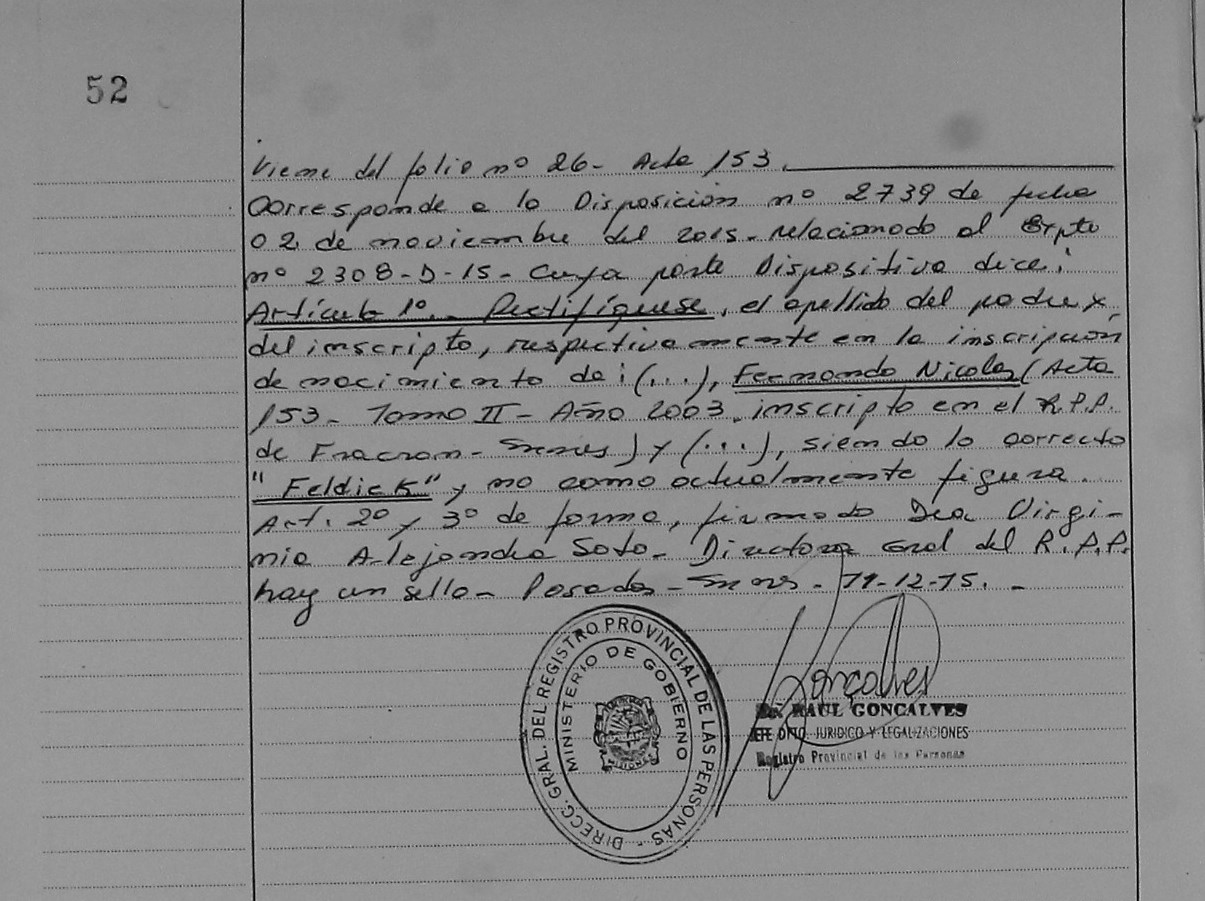 52
Viene del folio nº 26- Acta 153.
Corresponde a la Disposición nº 2739 de fecha
02 de noviembre del 2015- relacionado al Expte
nº 2308-D-15- Cuya parte Dispositiva dice:
Artículo 1º.- Rectifíquese, el apellido del padre y
del inscripto, respectivamente en la inscripción
de nacimiento de: (...), Fernando Nicolas (Acta
153- Tomo II- Año 2003. inscripto en el R.P.P.
de Fracran- Mnes) y (...), siendo lo correcto
"Feldick" y no como actualmente figura.
Art. 2º y 3º de forma, firmado Dra Virgi-
nia Alejandra Soto- Directora Gral del R.P.P.
hay un sello- Posadas- Mnes- 11-12-15.-
DIRECC. GRAL. DEL REGISTRO PROVINCIAL DE LAS PERSONAS -
MINISTERIO DE GOBIERNO
MISIONES
Gonçalves
Dr. RAUL GONCALVES
JEFE DPTO. JURIDICO Y LEGALIZACIONES
Registro Provincial de las Personas